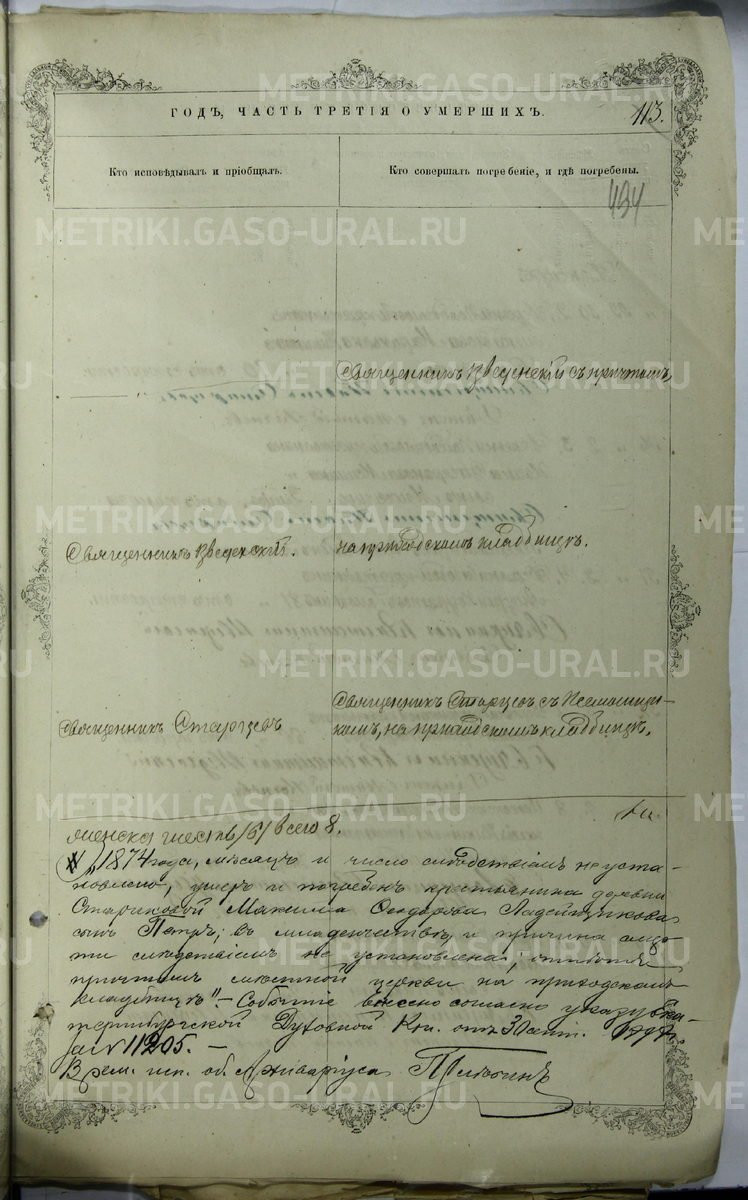 ГОДЪ, ЧАСТЬ ТРЕТІЯ О УМЕРШИХЪ.
113.
Кто исповѣдывалъ и пріобщалъ.
Кто совершалъ погребеніе, и гдѣ погребены.
494
Священникъ Введенскій съ причтомъ,
Священникъ Введенскій.
на приходскомъ кладбищѣ.
Священникъ Старцевъ
Священникъ Старцевъ съ Псаломщи-
комъ, на приходскомъ кладбищѣ.
женска шесть /6/ всего 8.
„1874 года, мѣсяцъ и число слѣдствіемъ не уста-
новлено, умеръ и погребенъ крестьянина деревни
Стариковой Максима Ѳедорова Ладейщикова
сынъ Петръ; въ младенчествѣ, и причина смер-
ти слѣдствіемъ не установлена;
причтомъ мѣстной церкви на приходскомъ
кладбищѣ". — Событіе внесено согласно указу Ека-
теринбургской Духовной Кон. отъ 30 сент.
за № 11205. —
Врем. исп. об. Архиваріуса
METRIKI.GASO-URAL.RU